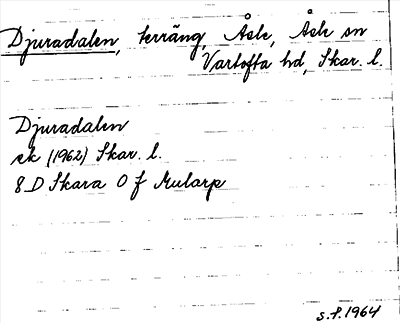 Djuradalen, terräng, Åsle, Åsle sn
Vartofta hd, Skar. l.
Djuradalen
ek (1962) Skar. l.
8 D Skara O f Mularp
s.f. 1964